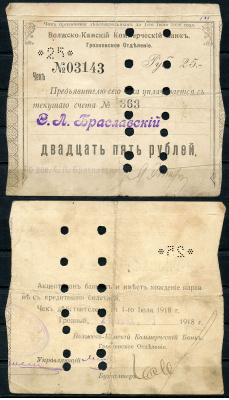 Чекъ предъявленъ действителенъ до 1-го Июля 1918 года.
Волжско-Камскій Коммерческій Банкъ.
Грозненское Отдѣленіе.
*25*
Чекъ №03143 Руб. 25.-
Предъявителю сего уплачивается съ
текущаго счета № 363
С. Л. Браславскій
двадцать пять рублей,
*25*
Акцептованъ банкомъ и имѣетъ хожденіе наравнѣ съ кредитными билетами.
Чекъ дѣйствителенъ 1-го Іюля 1918 г.
Грозный, 1918 г.
Волжско-Камскій Коммерческій Банкъ
Грозненское Отдѣленіе.
Управляющій
Бухгалтеръ